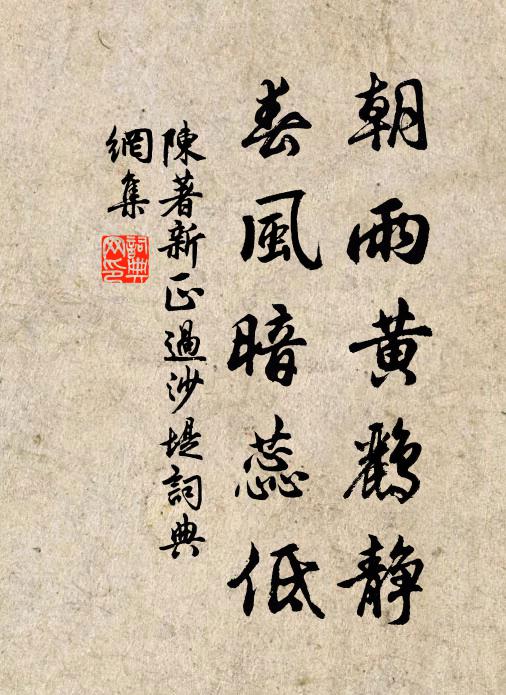 朝雨黄鸝静
春風暗蕊低
陳著新正過沙堤詞典
網集
詞典
网印